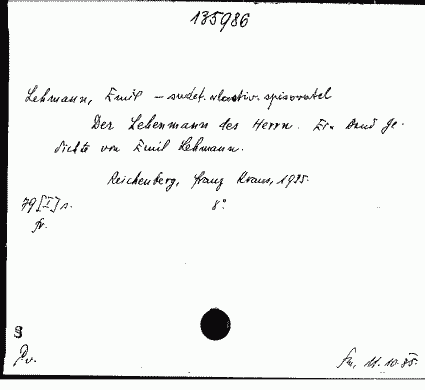 135986
Lehmann, Emil – sudet. vlastiv. spisovatel
Der Lehenmann des Herrn. Ein Band Ge-
dichte von Emil Lehmann.
Reichenberg, Franz Kraus, 1925.
79 [I] s. 8°
fr.
9
Pv. 11.10.85.